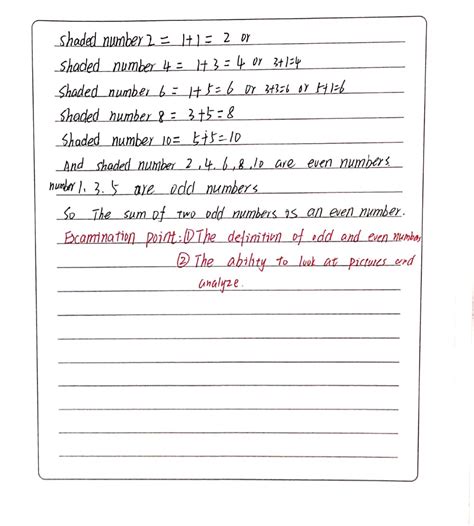 Shaded number 2 = 1+1 = 2 or
Shaded number 4 = 1+3 = 4 or 3+1=4
Shaded number 6 = 1+5 = 6 or 3+3=6 or 5+1=6
Shaded number 8 = 3+5=8
Shaded number 10= 5+5=10
And shaded number 2,4,6,8,10 are even numbers
number 1,3,5 are odd numbers
So The sum of two odd numbers is an even number.
Examination point:① The definition of odd and even number
② The ability to look at pictures and
analyze.